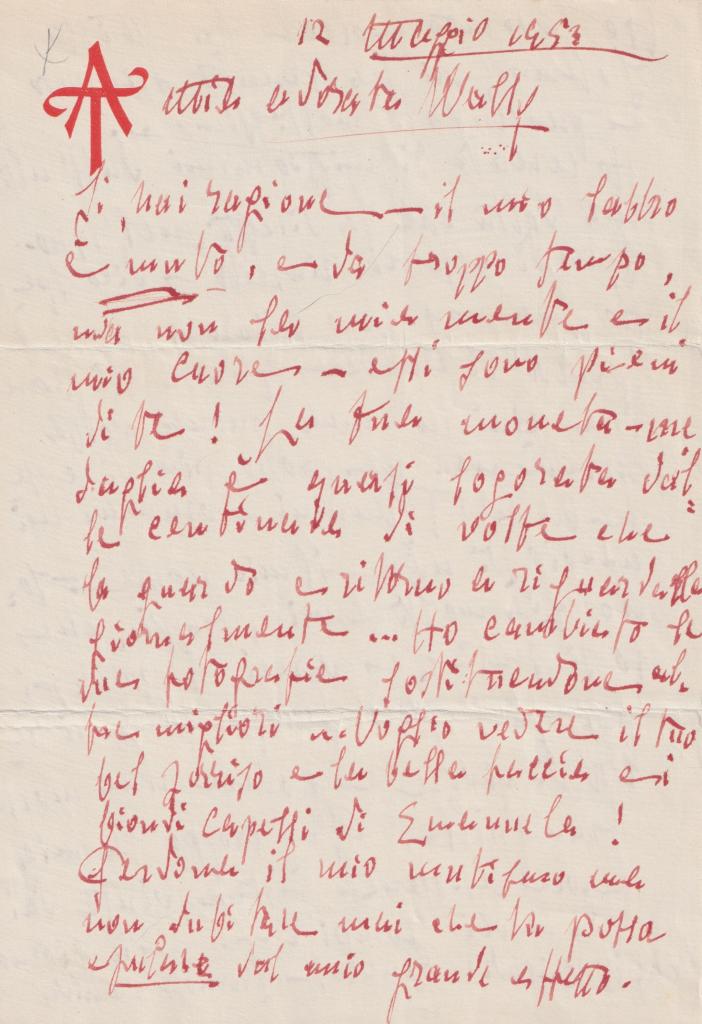 12 Maggio 1953
AT
Mia adorata Wally
Si, hai ragione — il mio labbro
è muto, e da troppo tempo,
ma non la mia mente e il
mio cuore — essi sono pieni
di te! La tua moneta-me
daglia è quasi logorata dal=
le centinaia di volte che
la guardo e ritorno a riguardalla
giornalmente ... Ho cambiato le
due fotografie sostituendone al-
tre migliori ... Voglio vedere il tuo
bel sorriso e la bella faccia e i
biondi capelli di Emanuela!
Perdona il mio mutismo ma
non dubitare mai che tu possa
esulare dal mio grande affetto.